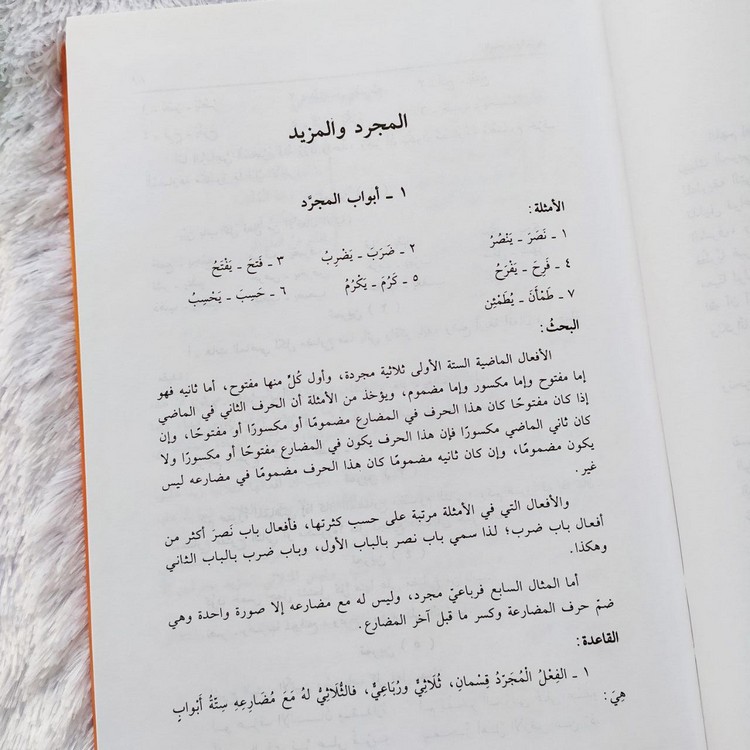 المجرد والمزيد
١ ـ أبواب المجرَّد
الأمثلة:
١ ـ نَصَرَ ـ يَنْصُرُ ٢ ـ ضَرَبَ ـ يَضْرِبُ ٣ ـ فَتَحَ ـ يَفْتَحُ
٤ ـ فَرِحَ ـ يَفْرَحُ ٥ ـ كَرُمَ ـ يَكْرُمُ ٦ ـ حَسِبَ ـ يَحْسِبُ
٧ ـ طَمْأَنَ ـ يُطَمْئِن
البحثُ:
الأفعال الماضية الستة الأولى ثلاثية مجردة، وأول كُلّ منها مفتوح، أما ثانيه فهو
إما مفتوح وإما مكسور وإما مضموم، ويؤخذ من الأمثلة أن الحرف الثاني في الماضي
إذا كان مفتوحًا كان هذا الحرف في المضارع مضمومًا أو مكسورًا أو مفتوحًا، وإن
كان ثاني الماضي مكسورًا فإن هذا الحرف يكون في المضارع مفتوحًا أو مكسورًا ولا
يكون مضمومًا، وإن كان ثانيه مضمومًا كان هذا الحرف مضمومًا في مضارعه ليس
غير.
والأفعال التي في الأمثلة مرتبة على حسب كثرتها، فأفعال باب نَصرَ أكثر من
أفعال باب ضرب؛ لذا سمي باب نصر بالباب الأول، وباب ضرب بالباب الثاني
وهكذا.
أما المثال السابع فرباعيّ مجرد، وليس له مع مضارعه إلا صورة واحدة وهي
ضمّ حرف المضارعة وكسر ما قبل آخر المضارع.
القاعدة:
١ ـ الفِعْلُ الْمُجَرّدُ قِسْمانِ، ثُلَاثِيٌّ ورُبَاعِيٌّ، فالثُلَاثِيُّ لهُ مَعَ مُضَارِعِهِ سِتَّةُ أَبْوابٍ
هِيَ: